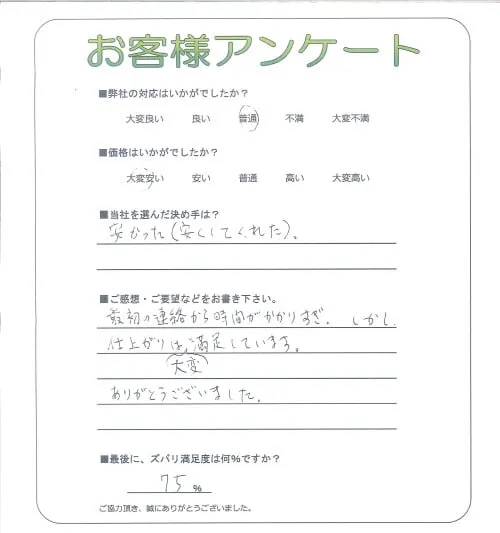 お客様アンケート
■弊社の対応はいかがでしたか？
大変良い 良い 普通 不満 大変不満
■価格はいかがでしたか？
大変安い 安い 普通 高い 大変高い
■当社を選んだ決め手は？
安かった(安くしてくれた)。
■ご感想・ご要望などをお書き下さい。
最初の連絡から時間がかかりすぎ. しかし.
仕上がりは満足しています。
大変
ありがとうございました。
■最後に、ズバリ満足度は何%ですか？
75 %
ご協力頂き、誠にありがとうございました。